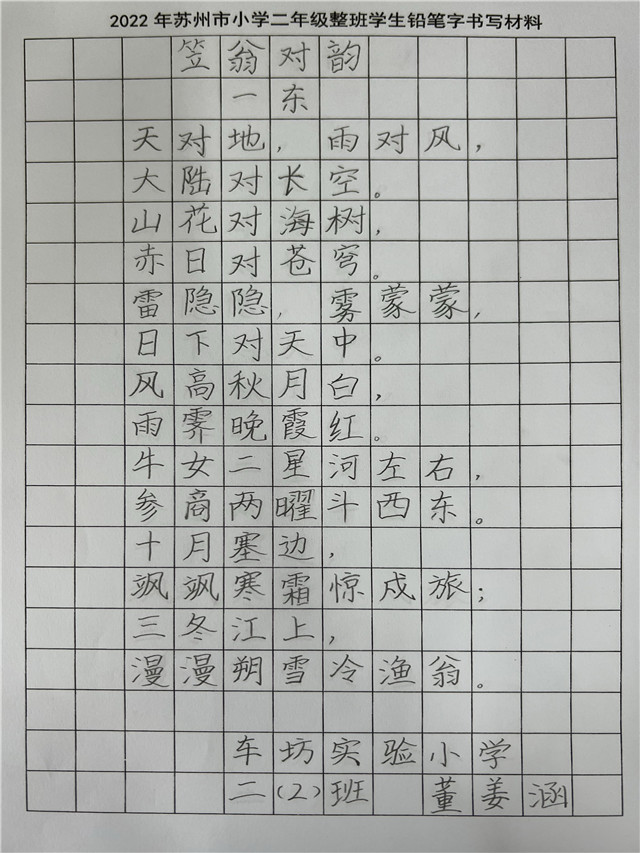 2022年苏州市小学二年级整班学生铅笔字书写材料
笠翁对韵
一东
天对地，雨对风，
大陆对长空。
山花对海树，
赤日对苍穹。
雷隐隐，雾蒙蒙，
日下对天中。
风高秋月白，
雨霁晚霞红。
牛女二星河左右，
参商两曜斗西东。
十月塞边，
飒飒寒霜惊戍旅；
三冬江上，
漫漫朔雪冷渔翁。
车坊实验小学
二(2)班 董姜涵